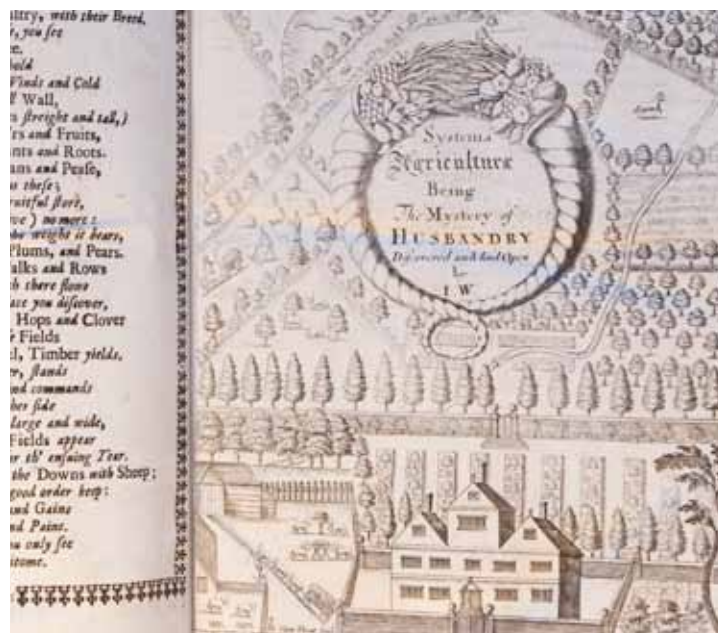 ultry, with their Breed,
, you see
e.
hold
Winds and Cold
Wall,
streight and tall,)
rs and Fruits,
nts and Roots.
ans and Pease,
us these;
ruitful store,
ve) no more:
the weight it bears,
Plums, and Pears.
alks and Rows
h there flows
ace you discover,
Hops and Clover
Fields
l, Timber yields.
r, stands
nd commands
her side
large and wide,
Fields appear
r th' ensuing Year.
the Downs with Sheep;
good order keep:
and Gaine
nd Paine.
you only see
stome.
Systema
Agriculturæ
Being
The Mystery of
HUSBANDRY
Discovered and layd Open
by
I W